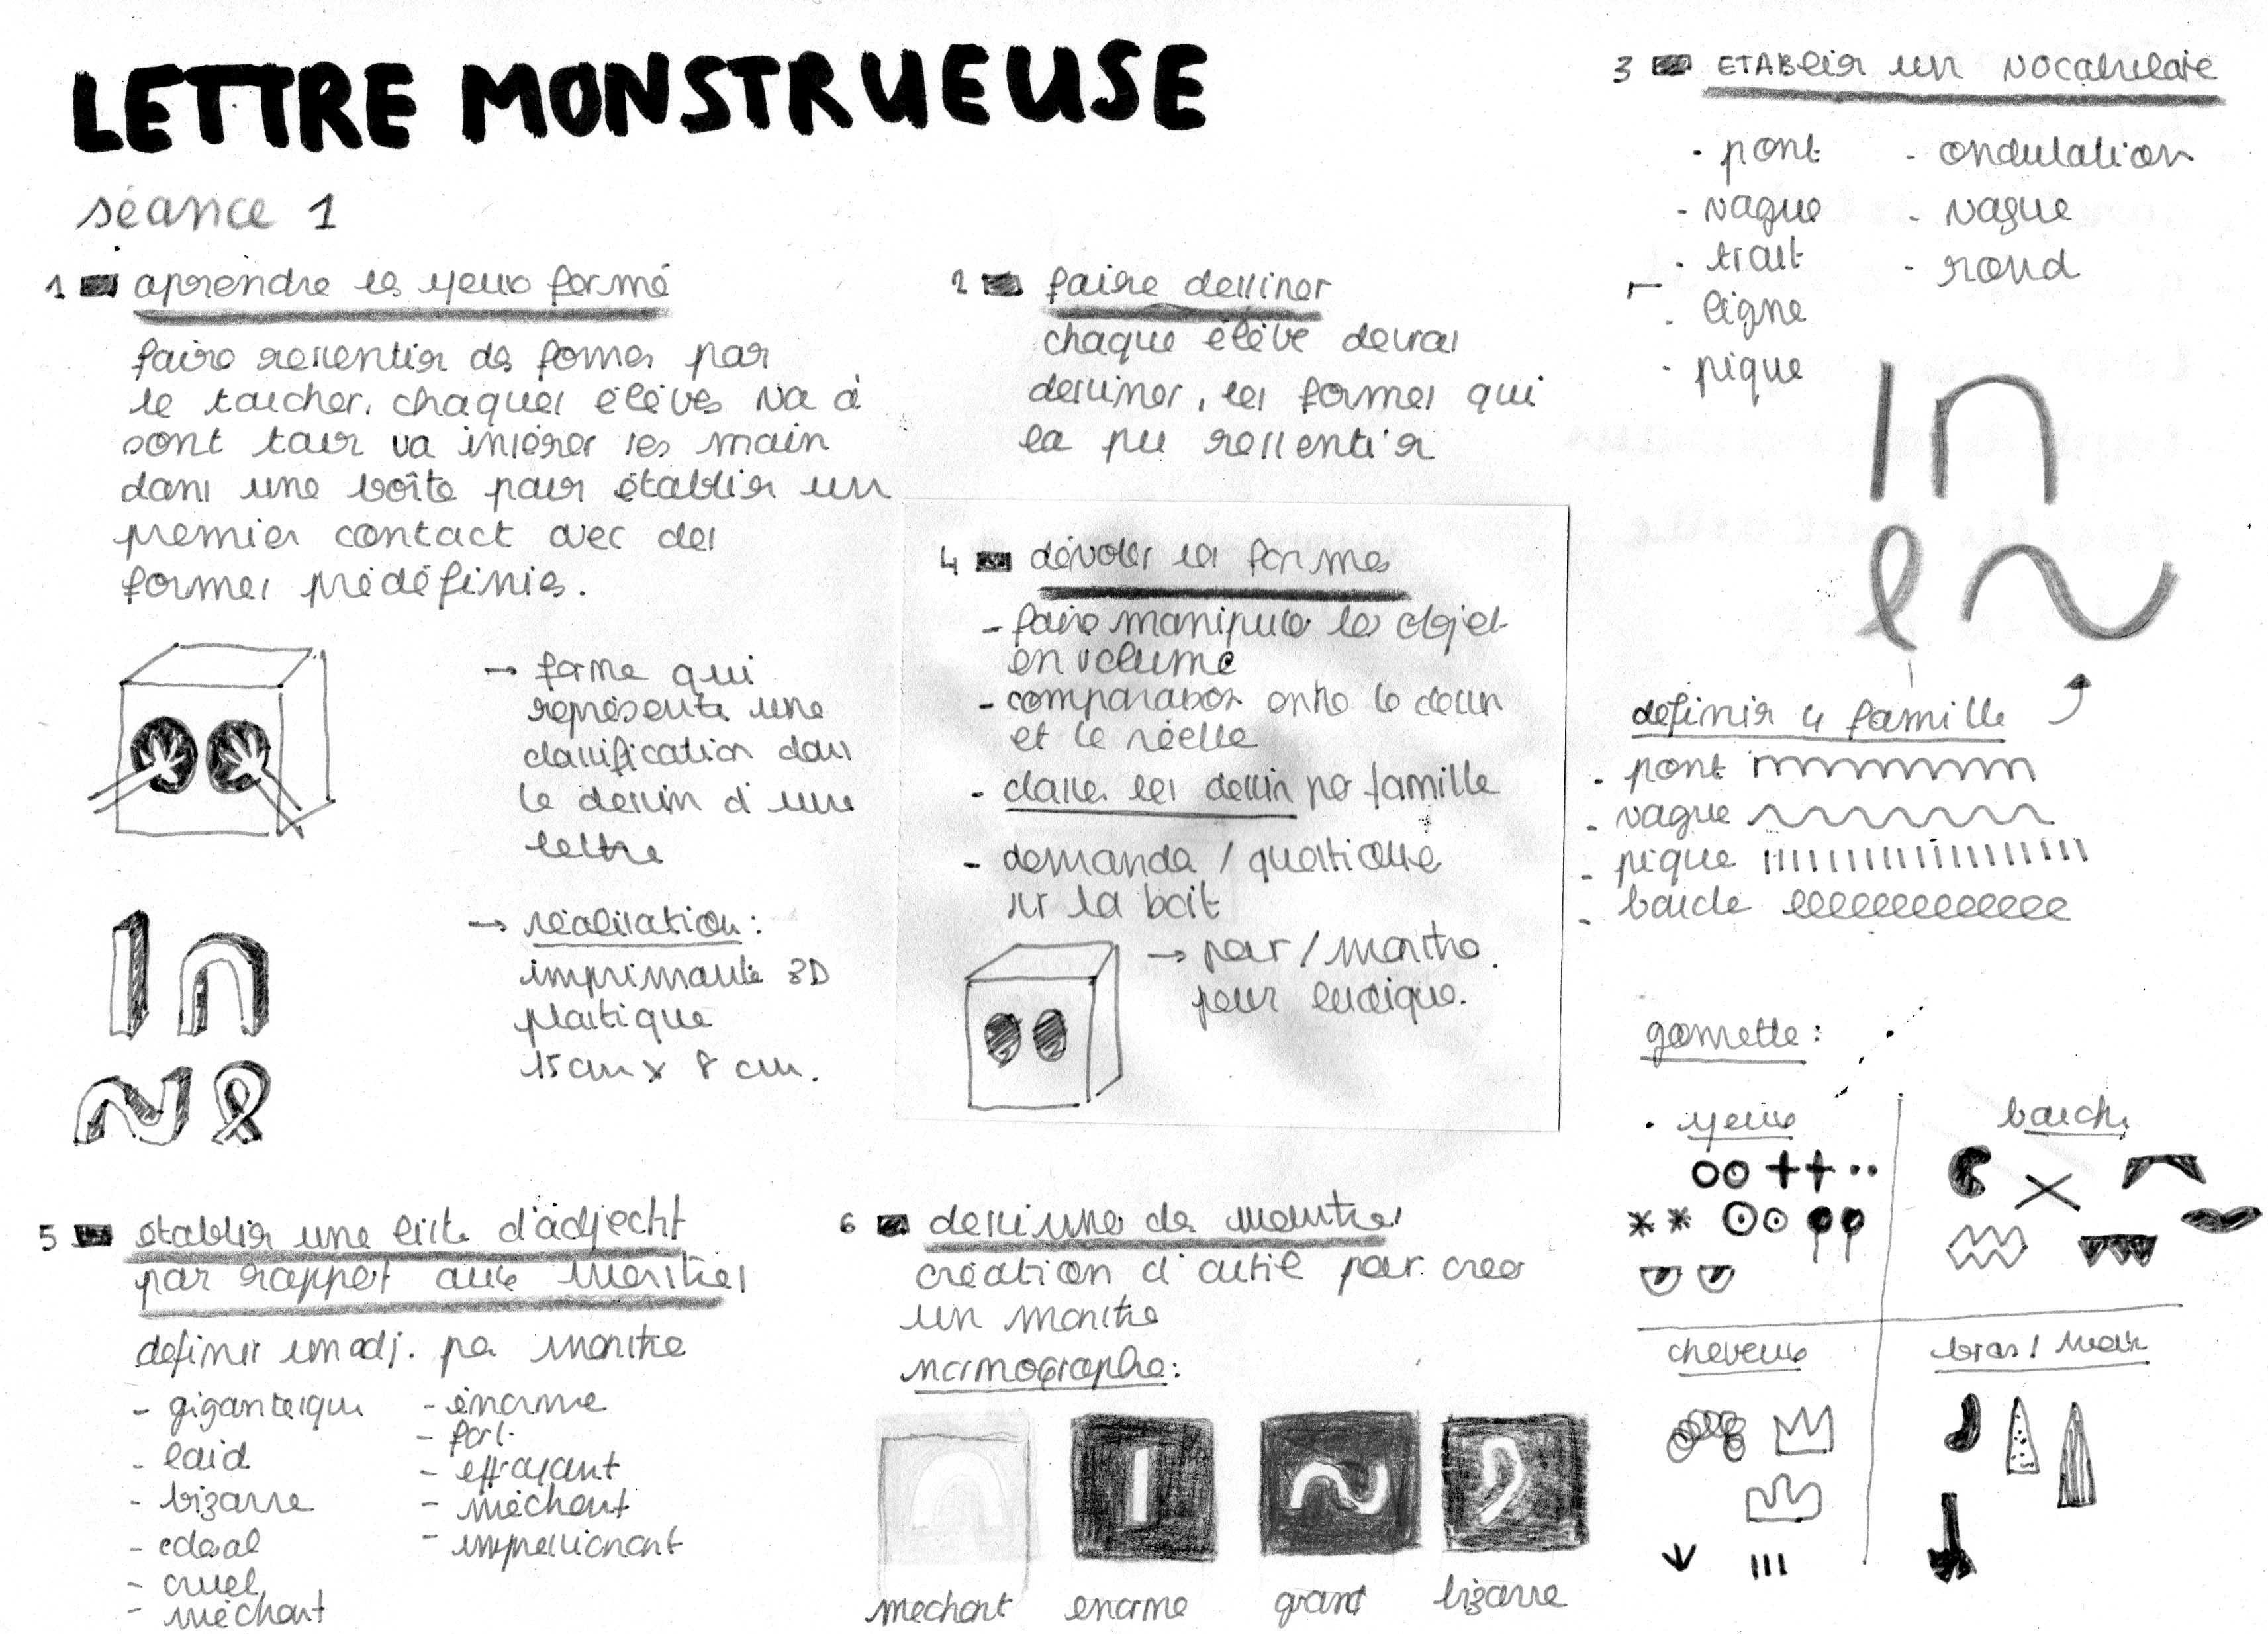 LETTRE MONSTRUEUSE
séance 1
1 aprendre les yeux fermé
faire ressentir des formes par
le toucher, chaques élèves va à
sont tour va insérer ses main
dans une boîte pour établir un
premier contact avec des
formes prédéfinies.
→ forme qui
représente une
classification dans
le dessin d'une
lettre
→ réalisation :
imprimante 3D
plastique
15 cm x 8 cm.
2 faire dessiner
chaque élève devra
dessiner, les formes qui
la pu ressentir
3 ETABlir un vocabulaire
- pont
- vague
- trait
- ligne
- pique
- ondulation
- vague
- rond
definir 4 famille
- pont
- vague
- pique
- boucle
4 dévoler les formes
- faire manipuler les objet
en volume
- comparaison entre le dessin
et le réelle
- classer les dessin par famille
- demander / questionne
sur la boit
→ peur / monstre.
pour ludique.
5 établir une liste d'adjectif
par rapport aux monstres
definir un adj. par monstre
- gigantesque
- laid
- bizarre
- colosal
- cruel
- méchant
- énorme
- fort
- effrayant
- méchant
- impressionant
6 dessiner des monstres
création d'outil pour créer
un monstre
normographe :
mechant
enorme
grand
bizarre
gomette :
. yeux
bouche
cheveux
bras / main